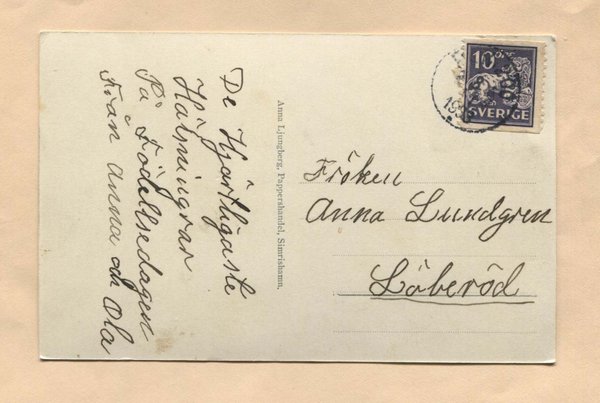 De Hjärtligaste
Hälsningrar
På Födellsedagen
Från Anna och Ola
Anna Ljungberg, Pappershandel, Simrishamn.
10 ÖRE
SVERIGE
Fröken
Anna Lundgren
Löberöd